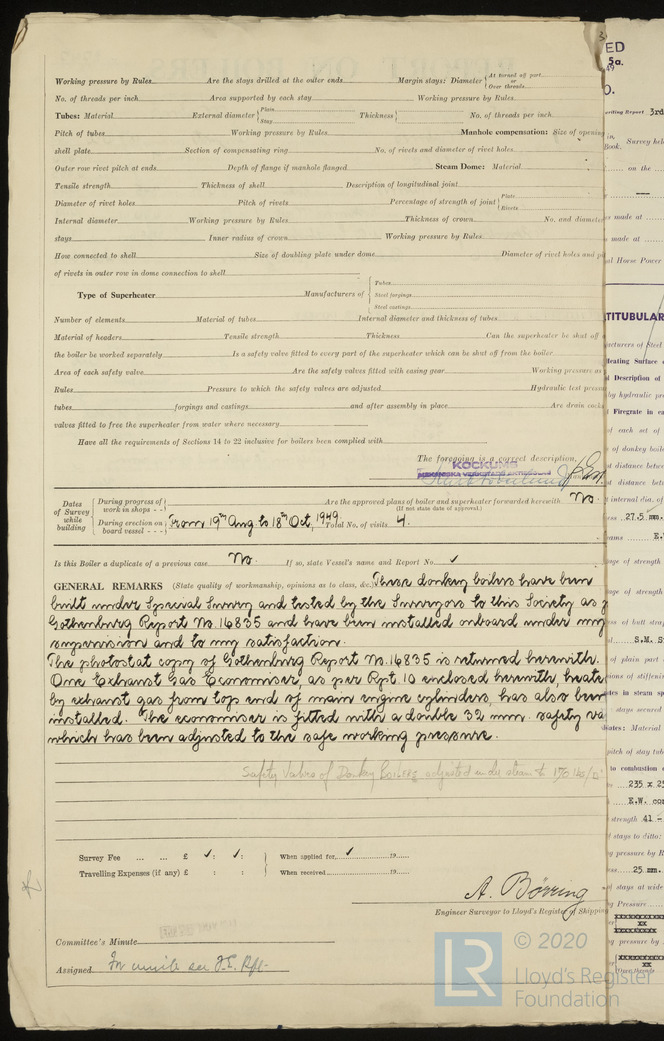 Working pressure by Rules Are the stays drilled at the outer ends Margin stays: Diameter { At turned off part or Over threads
No. of threads per inch Area supported by each stay Working pressure by Rules
Tubes: Material External diameter { Plain Stay Thickness { No. of threads per inch
Pitch of tubes Working pressure by Rules Manhole compensation: Size of opening
shell plate Section of compensating ring No. of rivets and diameter of rivet holes
Outer row rivet pitch at ends Depth of flange if manhole flanged Steam Dome: Material
Tensile strength Thickness of shell Description of longitudinal joint
Diameter of rivet holes Pitch of rivets Percentage of strength of joint { Plate Rivets
Internal diameter Working pressure by Rules Thickness of crown No. and diameter
stays Inner radius of crown Working pressure by Rules
How connected to shell Size of doubling plate under dome Diameter of rivet holes and p
of rivets in outer row in dome connection to shell
Type of Superheater Manufacturers of { Tubes Steel forgings Steel castings
Number of elements Material of tubes Internal diameter and thickness of tubes
Material of headers Tensile strength Thickness Can the superheater be shut off
the boiler be worked separately Is a safety valve fitted to every part of the superheater which can be shut off from the boiler
Area of each safety valve Are the safety valves fitted with easing gear Working pressure as
Rules Pressure to which the safety valves are adjusted Hydraulic test press
tubes forgings and castings and after assembly in place Are drain cocks
valves fitted to free the superheater from water where necessary
Have all the requirements of Sections 14 to 22 inclusive for boilers been complied with
The foregoing is a correct description,
KOCKUMS
Dates of Survey while building { During progress of work in shops - - Are the approved plans of boiler and superheater forwarded herewith No.
(If not state date of approval.)
During erection on board vessel - - - From 19th Aug to 18th Oct, 1949. Total No. of visits 4.
Is this Boiler a duplicate of a previous case No. If so, state Vessel's name and Report No. ✓
GENERAL REMARKS (State quality of workmanship, opinions as to class, &c. These donkey boilers have been
built under Special Survey and tested by the Surveyors to this Society as p
Gothenburg Report No. 16835 and have been installed onboard under my
supervision and to my satisfaction.
The photostat copy of Gothenburg Report No. 16835 is returned herewith.
One Exhaust Gas Economiser, as per Rpt 10 enclosed herewith, heate
by exhaust gas from top end of main engine cylinders, has also been
installed. The economiser is fitted with a double 32 mm. safety va
which has been adjusted to the safe working pressure.
Safety Valves of Donkey Boilers adjusted under steam to 170 lbs/□"
Survey Fee ... ... £ ✓ : ✓ : When applied for, ✓ 19
Travelling Expenses (if any) £ : : When received 19
A. Börring
Engineer Surveyor to Lloyd's Register of Shipping
Committee's Minute
Assigned
© 2020
LR Lloyd's Register
Foundation
ED
5a.
O.
3rd
Book. Survey hel
on the
made at
made at
al Horse Power
TITUBULAR
Heating Surface
Description of
by hydraulic pr
Firegrate in ea
of each set of
of donkey boile
27.5 mm.
S.M. S
235 x 25
E.W. con
strength 41 -
of stays to ditto:
25 mm.